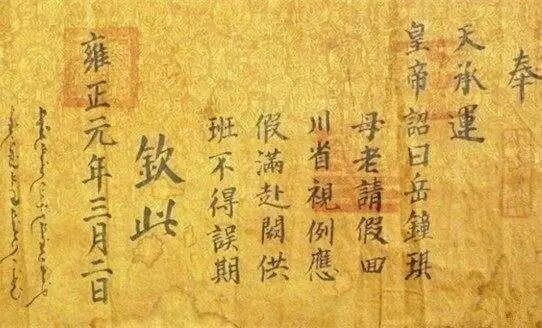 奉
天承運
皇帝詔曰岳鐘琪
母老請假回
川省視例應
假滿赴闕供
班不得誤期
欽此
雍正元年三月二日